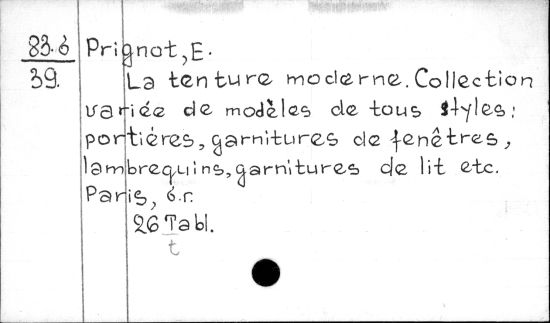 83.6 Prignot, E.
39. La tenture moderne. Collection
variée de modèles de tous styles:
portiéres, garnitures de fenêtres,
lambrequins, garnitures de lit etc.
Paris, б.г.
26 Tabl.
t